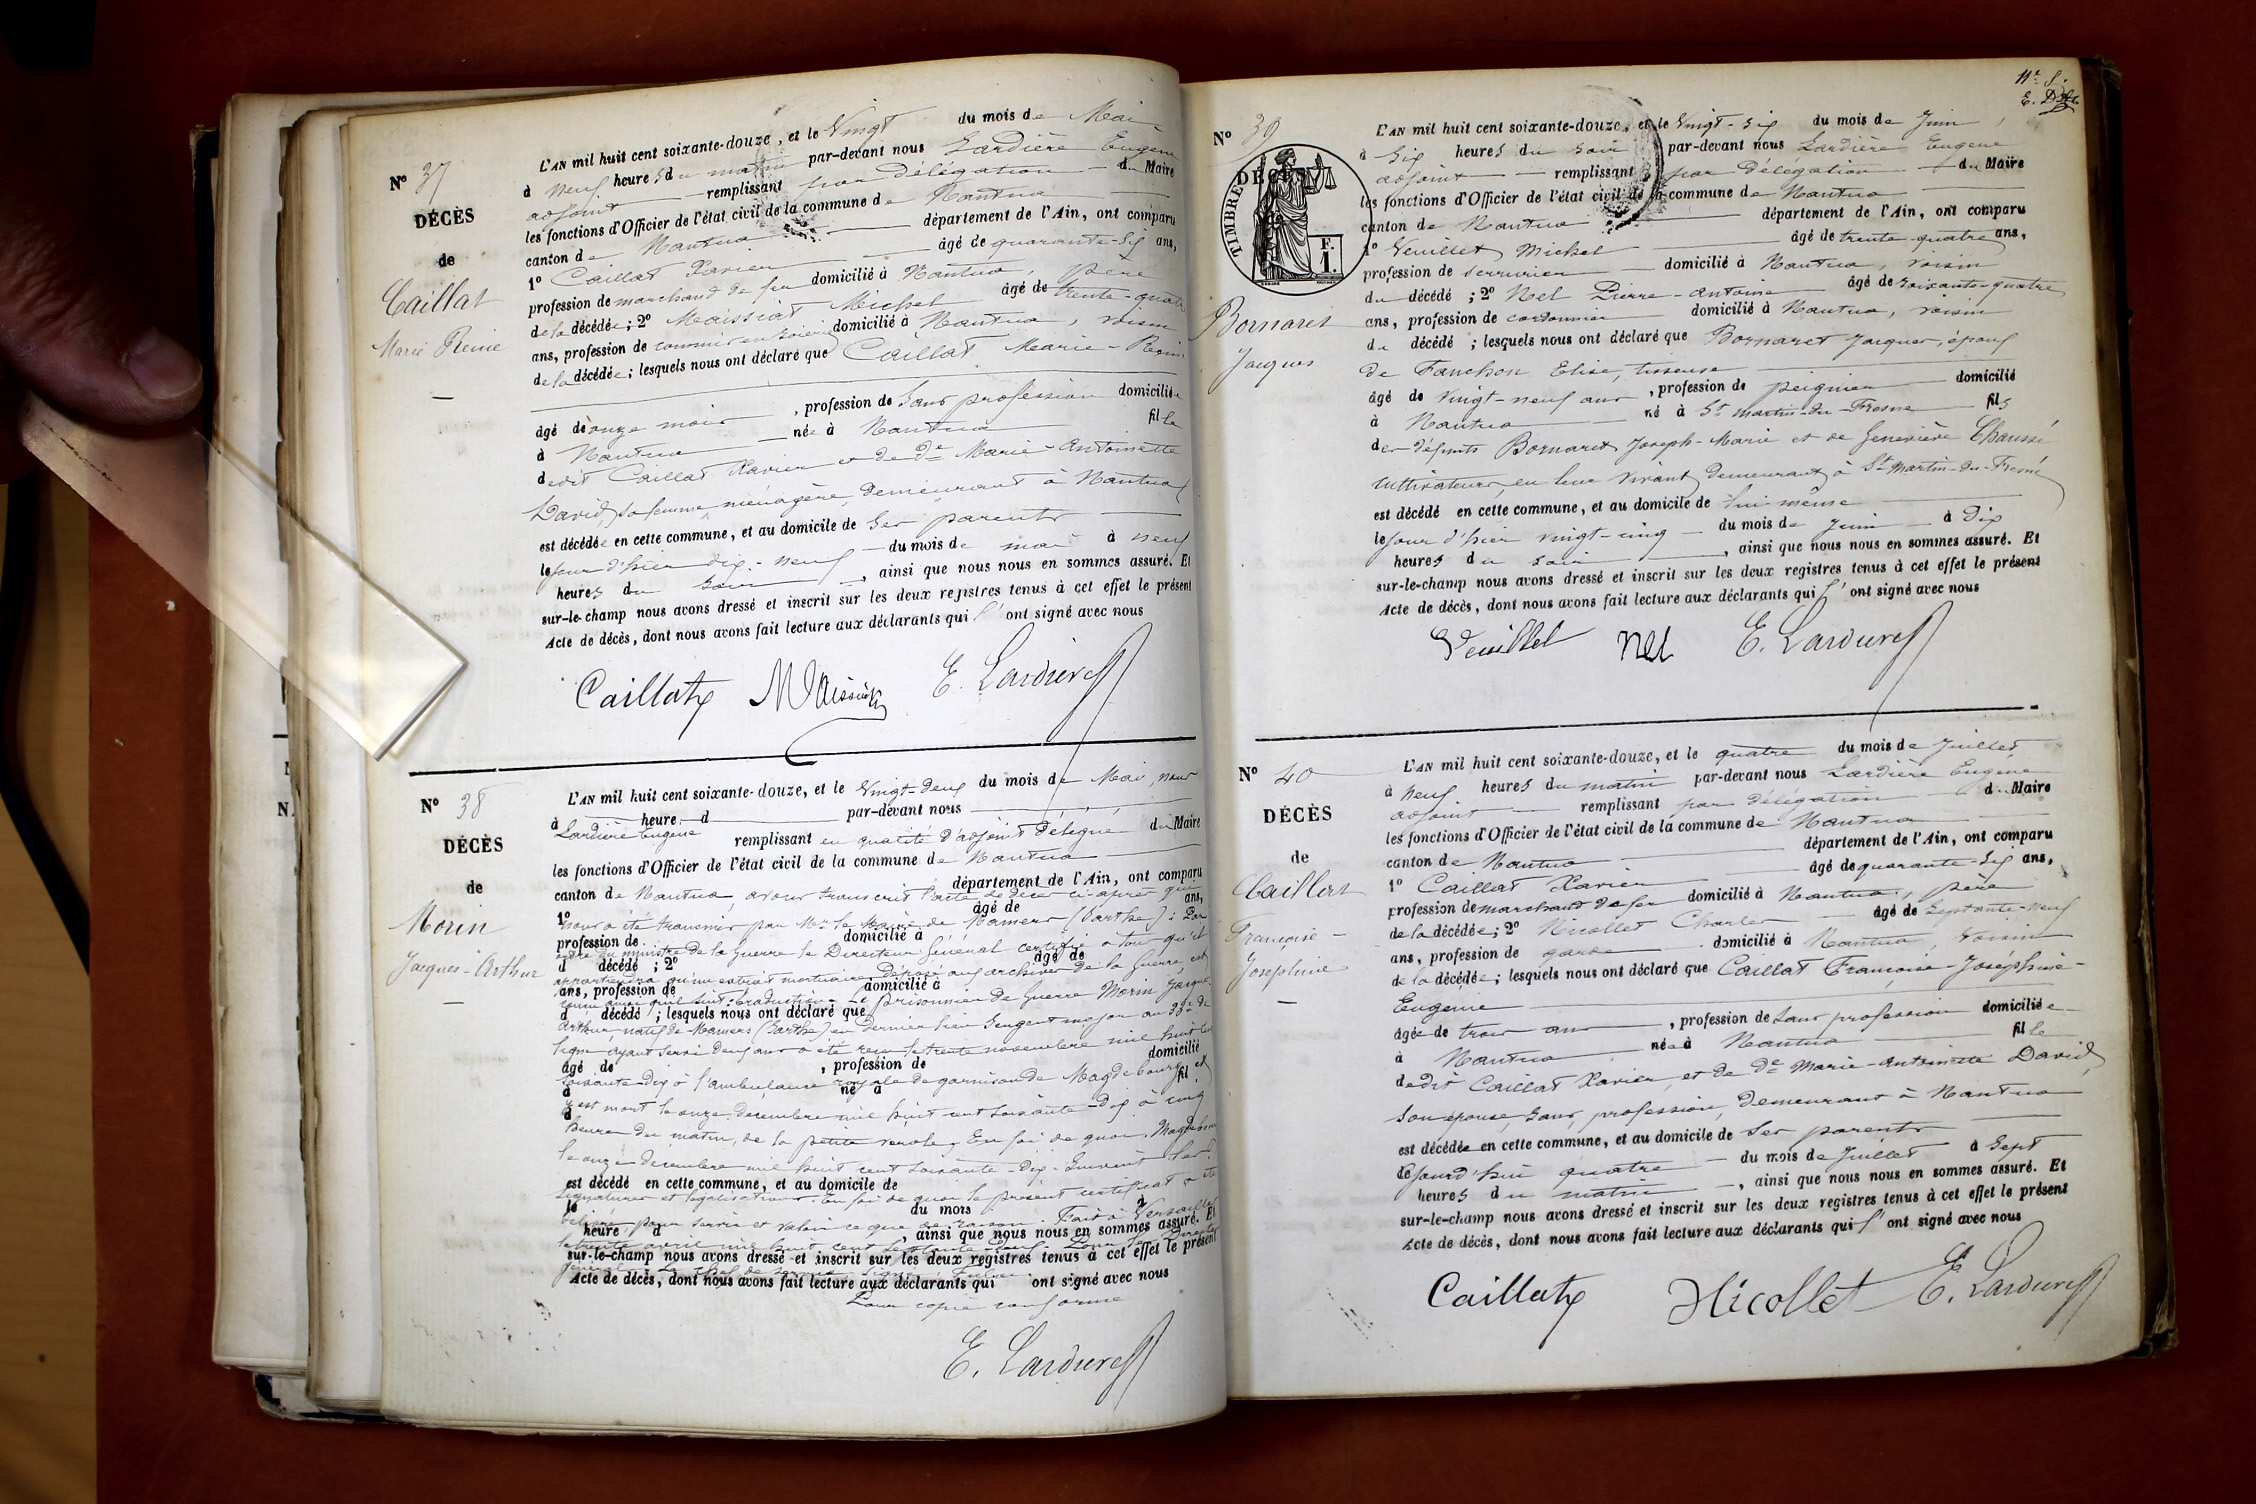 N° 37
DÉCÈS
de
Caillat
Marie Reine
L'AN mil huit cent soixante-douze, et le Vingt du mois de Mai
à neuf heures du matin par-devant nous Lardière Eugène
adjoint remplissant par délégation du Maire
les fonctions d'Officier de l'état civil de la commune de Nantua
canton de Nantua département de l'Ain, ont comparu
1° Caillat Xavier âgé de quarante-six ans,
profession de marchand de fer domicilié à Nantua, père
de la décédée; 2° Maissiat Michel âgé de trente-quatre
ans, profession de commis en soierie domicilié à Nantua, voisin
de la décédée; lesquels nous ont déclaré que Caillat Marie-Reine
âgé de onze mois, profession de sans profession domiciliée
à Nantua née à Nantua fille
dedit Caillat Xavier et de de Marie-Antoinette
David, sa femme, ménagère, demeurant à Nantua
est décédée en cette commune, et au domicile de ses parents
le jour d'hier dix-neuf du mois de mai à neuf
heures du soir, ainsi que nous nous en sommes assuré. Et
sur-le-champ nous avons dressé et inscrit sur les deux registres tenus à cet effet le présent
Acte de décès, dont nous avons fait lecture aux déclarants qui l'ont signé avec nous
Caillat Maissiat E. Lardière
N° 38
DÉCÈS
de
Morin
Jacques-Arthur
L'AN mil huit cent soixante-douze, et le Vingt-deux du mois de Mai, nous
à heure d par-devant nous
Lardière Eugène remplissant en qualité d'adjoint délégué du Maire
les fonctions d'Officier de l'état civil de la commune de Nantua
canton de Nantua, avons transcrit l'acte de décès ci-après qui département de l'Ain, ont comparu
1° âgé de ans,
nous a été transmis par Mr le Maire de Mamers (Sarthe): Par
profession de domicilié à
ordre du ministre de la Guerre le Directeur Général certifie à tous qu'il
d décédé; 2° âgé de
appartiendra qu'un extrait mortuaire déposé aux archives de la Guerre, est
ans, profession de domicilié à
conçu ainsi qu'il suit: traduction Le prisonnier de Guerre Morin Jacques
d décédé; lesquels nous ont déclaré que
Arthur natif de Mamers (Sarthe) en dernier lieu Sergent major au 33e de
ligne ayant servi deux ans a été reçu le trente novembre mil huit cent
âgé de, profession de domicilié
soixante-dix à l'ambulance royale de garnison de Magdebourg et
à né à fil
y est mort le onze décembre mil huit cent soixante-dix à cinq
d
heures du matin, de la petite vérole. En foi de quoi. Magdebourg
le onze décembre mil huit cent soixante-dix. Suivent les
est décédé en cette commune, et au domicile de
signatures et légalisations. En foi de quoi le présent certificat a été
le du mois à
délivré pour servir et valoir ce que de raison. Fait à Versailles
heure d, ainsi que nous nous en sommes assuré. Et
le trente avril mil huit cent
sur-le-champ nous avons dressé et inscrit sur les deux registres tenus à cet effet le présent
Acte de décès, dont nous avons fait lecture aux déclarants qui ont signé avec nous
Pour copie conforme
E. Lardière
N° 39
DÉCÈS
TIMBRE
F.
1.
Bornaret
Jacques
L'AN mil huit cent soixante-douze, et le Vingt-six du mois de Juin,
à six heures du soir par-devant nous Lardière Eugène
adjoint remplissant par délégation du Maire
les fonctions d'Officier de l'état civil de la commune de Nantua
canton de Nantua département de l'Ain, ont comparu
1° Veuillet Michel âgé de trente-quatre ans,
profession de serrurier domicilié à Nantua, voisin
du décédé; 2° Nel Pierre-Antoine âgé de soixante-quatre
ans, profession de cordonnier domicilié à Nantua, voisin
du décédé; lesquels nous ont déclaré que Bornaret Jacques, époux
de Fanchon Elise, tisseuse
âgé de vingt-neuf ans, profession de peignier domicilié
à Nantua né à St martin-du-Fresne fils
des défunts Bornaret Joseph-Marie et de Geneviève Chaussé
cultivateurs, en leur vivant demeurant à St Martin-du-Fresne
est décédé en cette commune, et au domicile de lui même
le jour d'hier vingt-cinq du mois de juin à dix
heures du soir, ainsi que nous nous en sommes assuré. Et
sur-le-champ nous avons dressé et inscrit sur les deux registres tenus à cet effet le présent
Acte de décès, dont nous avons fait lecture aux déclarants qui l'ont signé avec nous
Veuillet Nel E. Lardière
N° 40
DÉCÈS
de
Caillat
Françoise-
Joséphine
L'AN mil huit cent soixante-douze, et le quatre du mois de Juillet
à neuf heures du matin par-devant nous Lardière Eugène
adjoint remplissant par délégation du Maire
les fonctions d'Officier de l'état civil de la commune de Nantua
canton de Nantua département de l'Ain, ont comparu
1° Caillat Xavier âgé de quarante-six ans,
profession de marchand de fer domicilié à Nantua, père
de la décédée; 2° Nicollet Charles âgé de septante-neuf
ans, profession de garde domicilié à Nantua, voisin
de la décédée; lesquels nous ont déclaré que Caillat Françoise-Joséphine-
Eugenie
âgée de trois ans, profession de sans profession domiciliée
à Nantua née à Nantua fille
dedit Caillat Xavier, et de de Marie-Antoinette David,
son épouse, sans profession, demeurant à Nantua
est décédée en cette commune, et au domicile de ses parents
cejourd'hui quatre du mois de Juillet à sept
heures du matin, ainsi que nous nous en sommes assuré. Et
sur-le-champ nous avons dressé et inscrit sur les deux registres tenus à cet effet le présent
Acte de décès, dont nous avons fait lecture aux déclarants qui l'ont signé avec nous
Caillat Nicollet E. Lardière